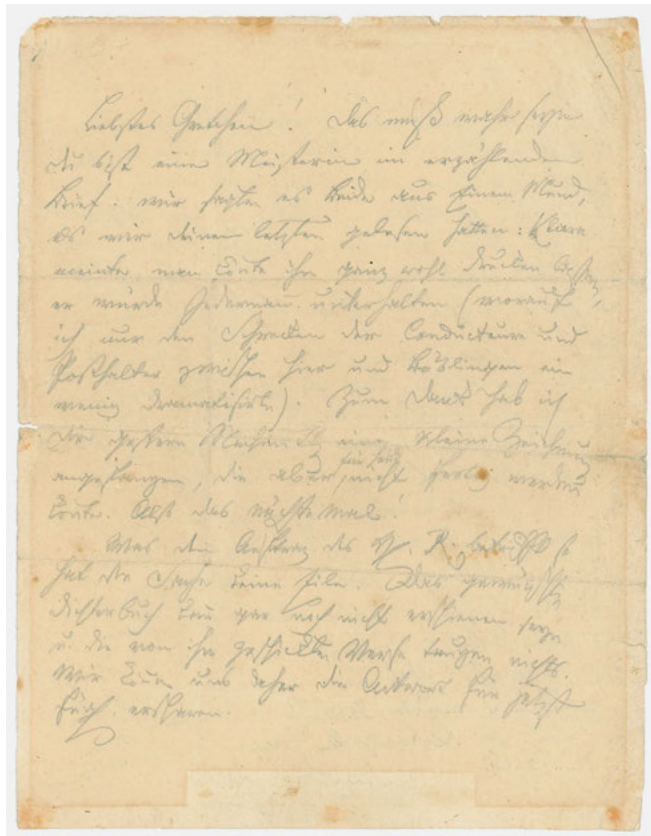 Liebstes Gretchen! Das muß wahr seyn
du bist eine Meisterin im erzählenden
Brief: wir sagten es beide aus Einem Mund,
als wir deinen letzten gelesen hatten: Klara
meinte, man könte ihn ganz wohl drucken lassen,
er würde Jedermann unterhalten (worauf
ich nur den Schrecken der Conducteure und
Posthalter zwischen hier und Böblingen ein
wenig dramatisirte). Zum Dank hab ich
dir gestern Nachmittg eine kleine Zeichnung
angefangen, die aber für heut nicht fertig werden
konte. Also das nächste mal!
Was den Auftrag des H. R. betrifft so
hat die Sache keine Eile. Das gewünschte
Dichterbuch kann gar noch nicht erschienen seyn
u. die von ihm geschickten Verse taugen nichts.
Wir könen uns daher die Antwort für jetzt
füglich ersparen.